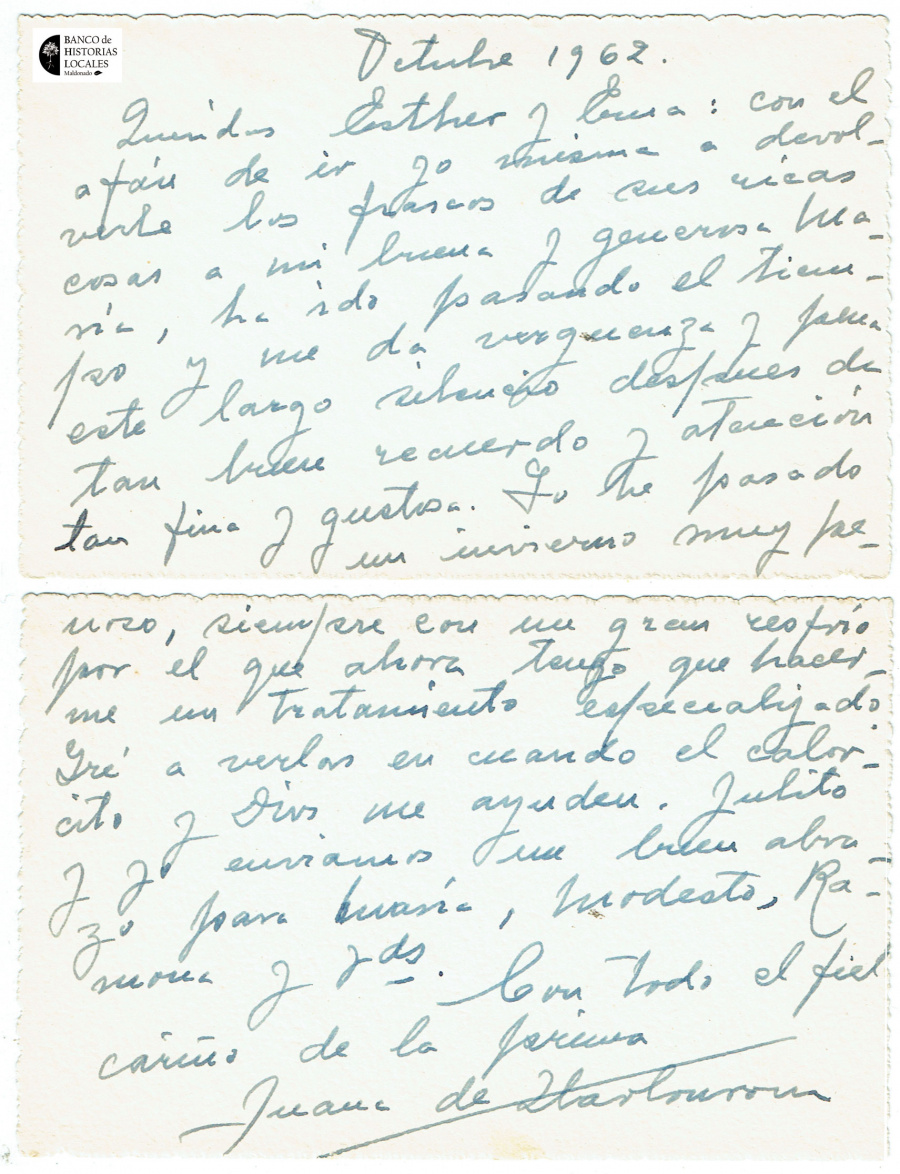 BANCO de
HISTORIAS
LOCALES
Maldonado
Octubre 1962.
Queridas Esther y Ema: con el
afán de ir yo misma a devol-
verle los frascos de sus ricas
cosas a mi buena y generosa Ma-
ría, ha ido pasando el tiem-
po y me da verguenza y pena
este largo silencio despues de
tan buen recuerdo y atención
tan fina y gustosa. Yo he pasado
un invierno muy pe-
noso, siempre con un gran resfrío
por el que ahora tengo que hacer-
me un tratamiento especializado
Iré a verlos en cuando el calor-
cito y Dios me ayuden. Julito
y yo enviamos un buen abra-
zo para María, Modesto, Ra-
mona y Vds.
Con todo el fiel
cariño de la prima
Juana de Ibarbourou